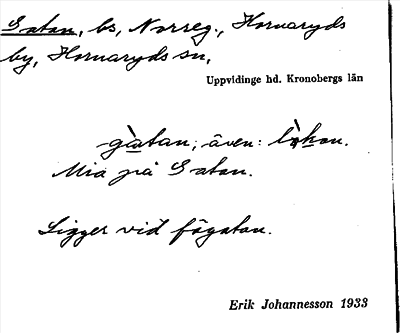 Gatan, bs, Norreg., Hornaryds
by, Hornaryds sn,
Uppvidinge hd. Kronobergs län
gàtan; även: l
Mia på Gatan.
Ligger vid fägatan.
Erik Johannesson 1933